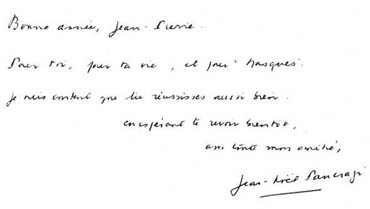 Bonne année, Jean-Pierre.
Pour toi, pour ta vie, et pour Masques.
Je suis content que tu réussisses aussi bien.
en espérant te revoir bientôt,
avec toute mon amitié,
Jean-Noël Pancrazi